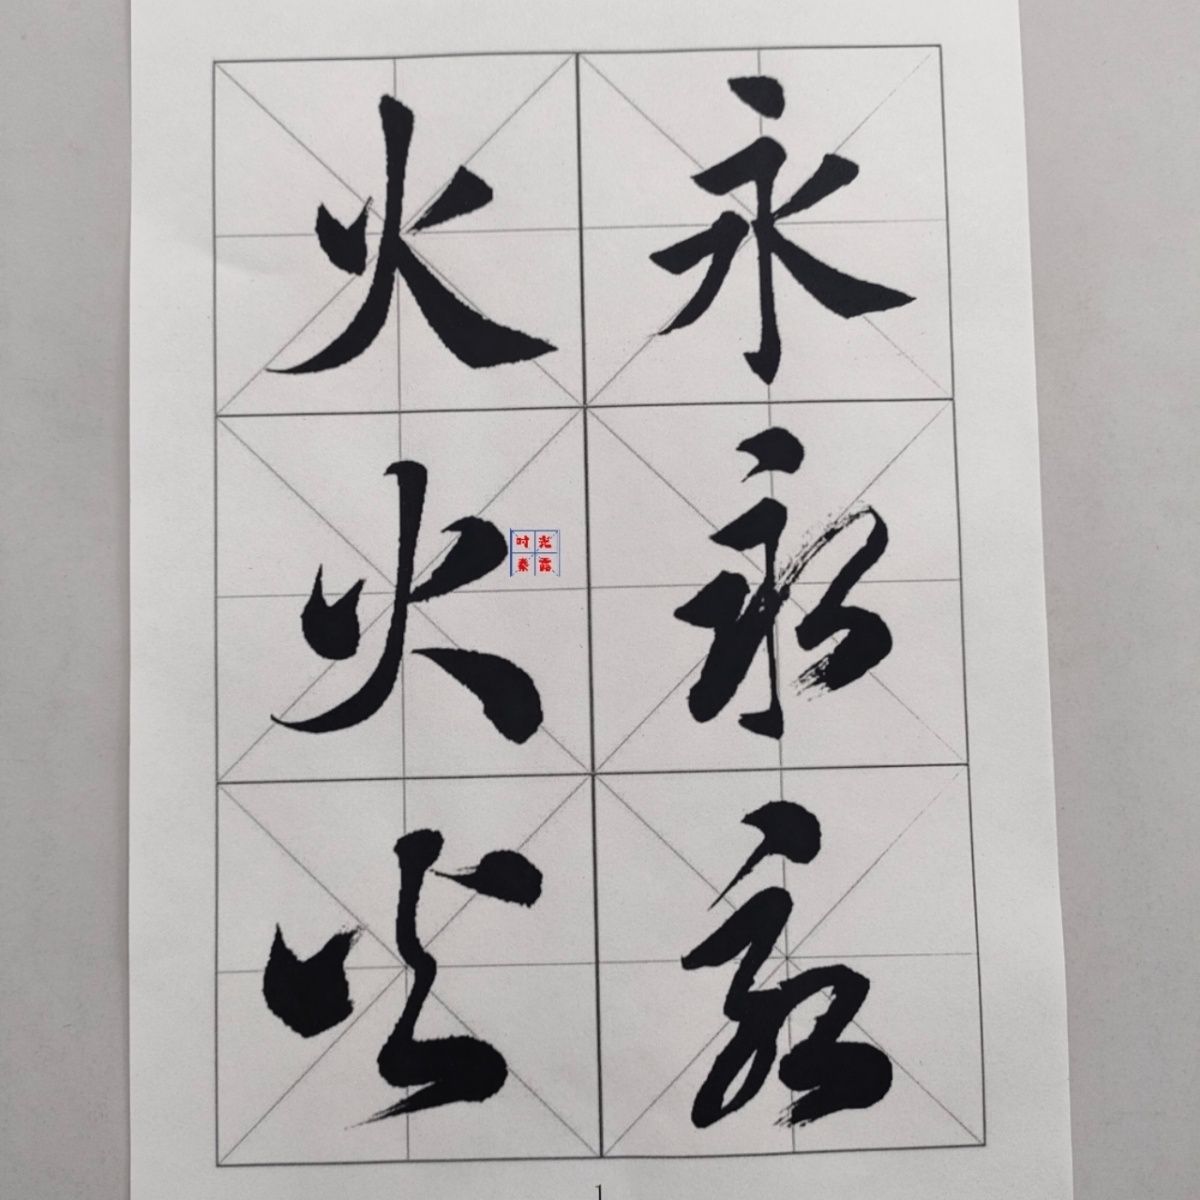 火永
火永
时光
秦露
火永
1